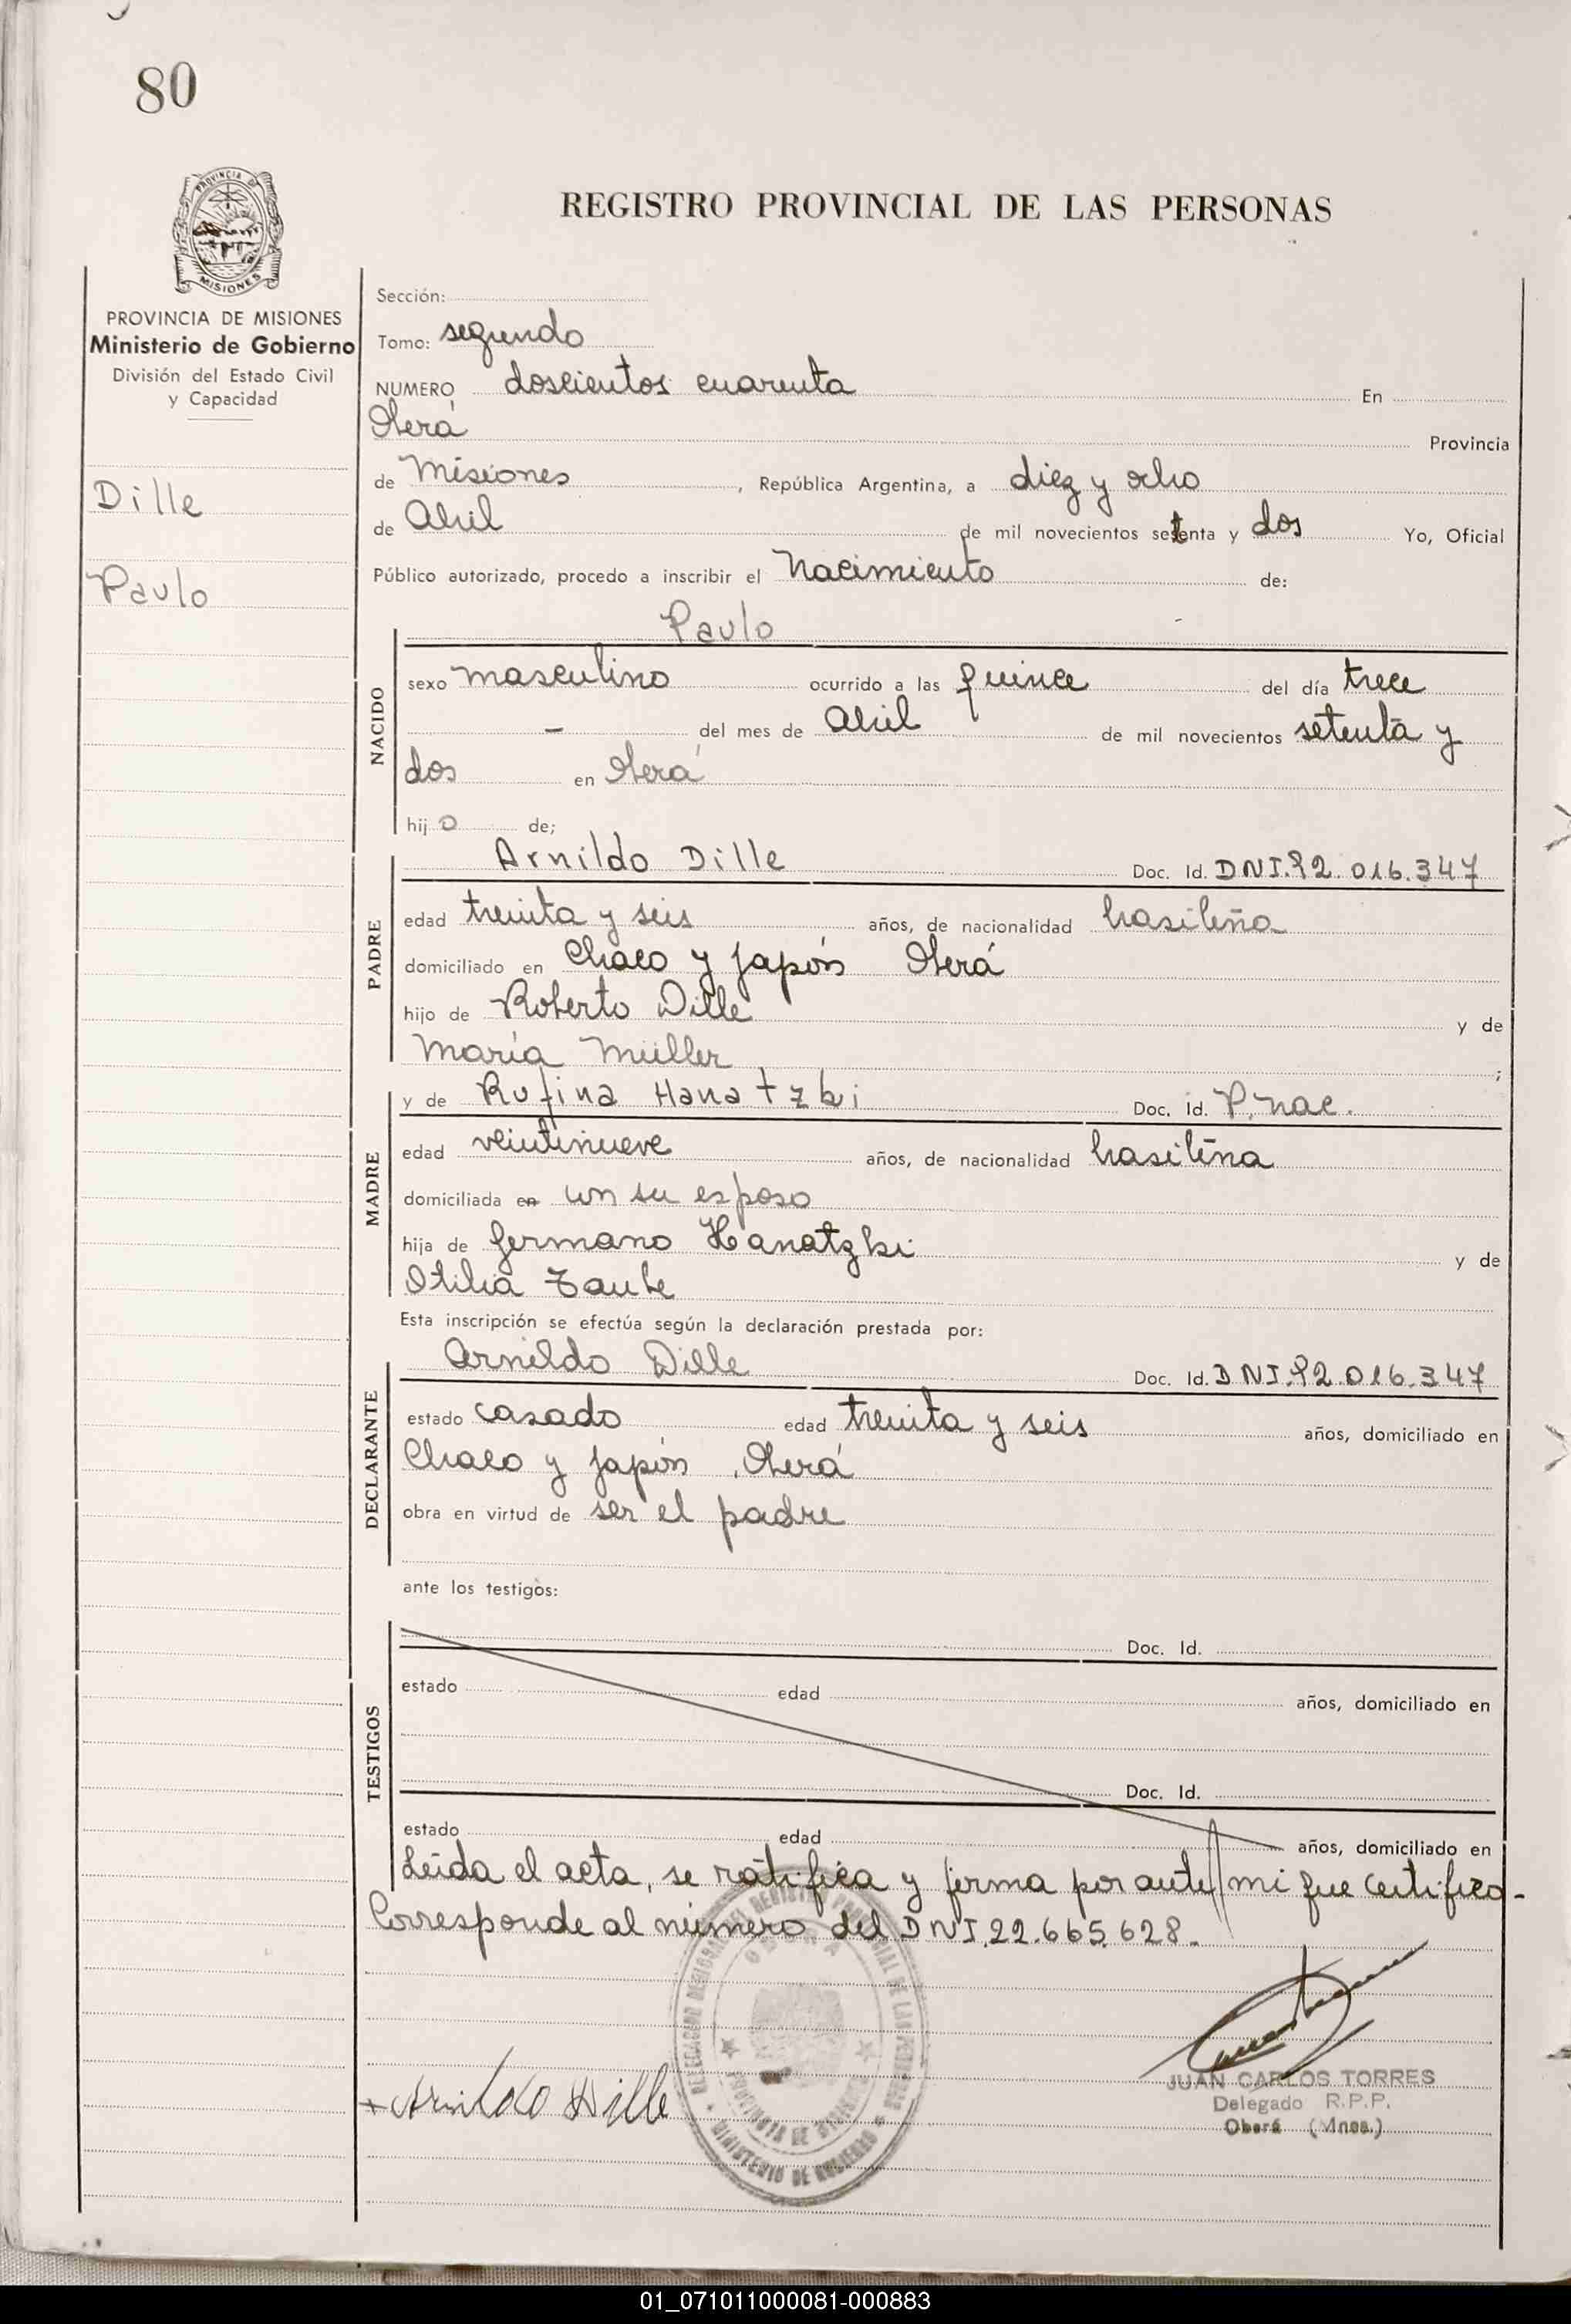 80
PROVINCIA DE
MISIONES
REGISTRO PROVINCIAL DE LAS PERSONAS
PROVINCIA DE MISIONES
Ministerio de Gobierno
División del Estado Civil
y Capacidad
Dille
Paulo
Sección:
Tomo: segundo
NUMERO doscientos cuarenta En
Oberá Provincia
de Misiones, República Argentina, a diez y ocho
de Abril de mil novecientos setenta y dos Yo, Oficial
Público autorizado, procedo a inscribir el Nacimiento de:
Paulo
NACIDO
sexo masculino ocurrido a las quince del día trece
- del mes de Abril de mil novecientos setenta y
dos en Oberá
hijo de;
PADRE
Arnildo Dille Doc. Id. DNI.92.016.347
edad treinta y seis años, de nacionalidad brasileña
domiciliado en Chaco y Japón Oberá
hijo de Roberto Dille y de
María Müller ;
MADRE
y de Rufina Hanatzki Doc. Id. P. nac.
edad veintinueve años, de nacionalidad brasileña
domiciliada en con su esposo
hija de Germano Hanatzki y de
Otilia Taube
Esta inscripción se efectúa según la declaración prestada por:
DECLARANTE
Arnildo Dille Doc. Id. DNI.92.016.347
estado casado edad treinta y seis años, domiciliado en
Chaco y Japón, Oberá
obra en virtud de ser el padre
ante los testigos:
TESTIGOS
Doc. Id.
estado edad años, domiciliado en
Doc. Id.
estado edad años, domiciliado en
Leida el acta, se ratifica y firma por ante mi que certifico-
Corresponde al número del DNI.22.665.628.
Arnildo Dille
JUAN CARLOS TORRES
Delegado R.P.P.
Oberá (Mnes.)
MINISTERIO DE GOBIERNO
01_071011000081-000883